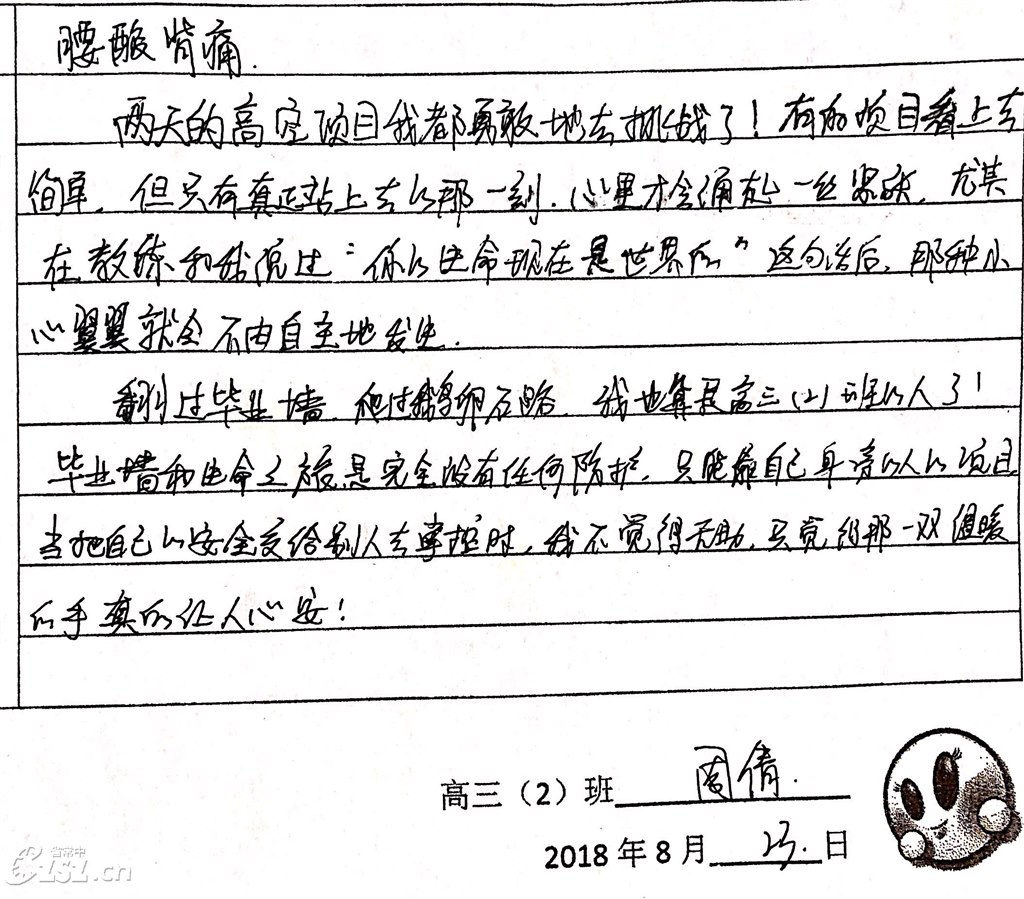 腰酸背痛.
两天的高空项目我都勇敢地去挑战了！有的项目看上去
简单，但只有真正站上去的那一刻，心里才会涌起一丝紧张，尤其
在教练和我说过“你的生命现在是世界的”这句话后，那种小
心翼翼就会不由自主地发生.
翻过毕业墙，爬过鹅卵石路，我也算是高三(2)班的人了！
毕业墙和生命之旅是完全没有任何防护，只能靠自己身旁的人的项目
当把自己的安全交给别人去掌控时，我不觉得无助，只觉得那一双温暖
的手真的让人心安！
高三（2）班 周倩.
2018年8月 23. 日
省常中
1s1.cn